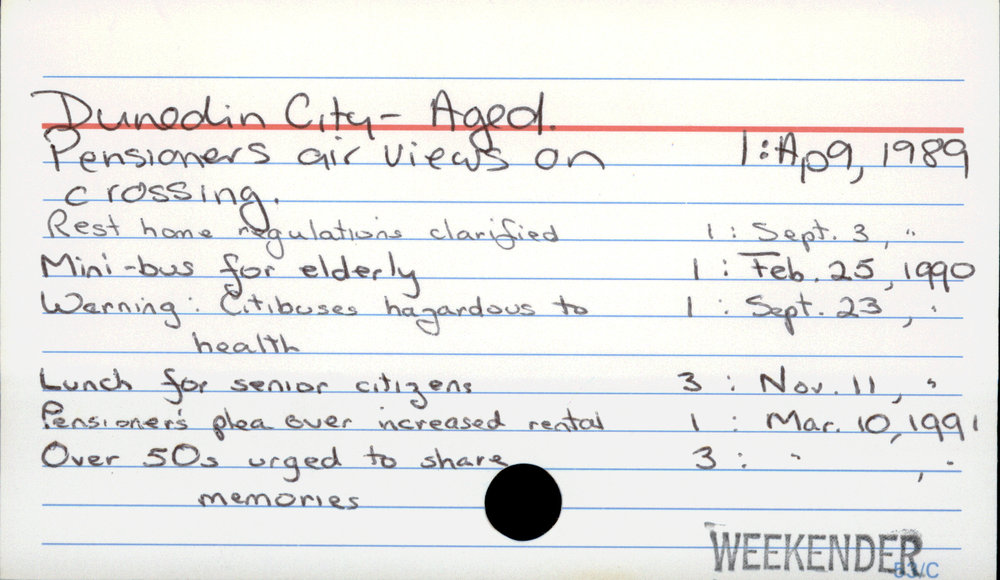 Dunedin City - Aged.
Pensioners air views on 1: Ap 9, 1989
crossing.
Rest home regulations clarified 1 : Sept. 3, "
Mini-bus for elderly 1 : Feb. 25, 1990
Warning: Citibuses hazardous to 1 : Sept. 23, "
health
Lunch for senior citizens 3 : Nov. 11, "
Pensioner's plea over increased rental 1 : Mar. 10, 1991
Over 50s urged to share 3 : " , "
memories
WEEKENDER
53/C